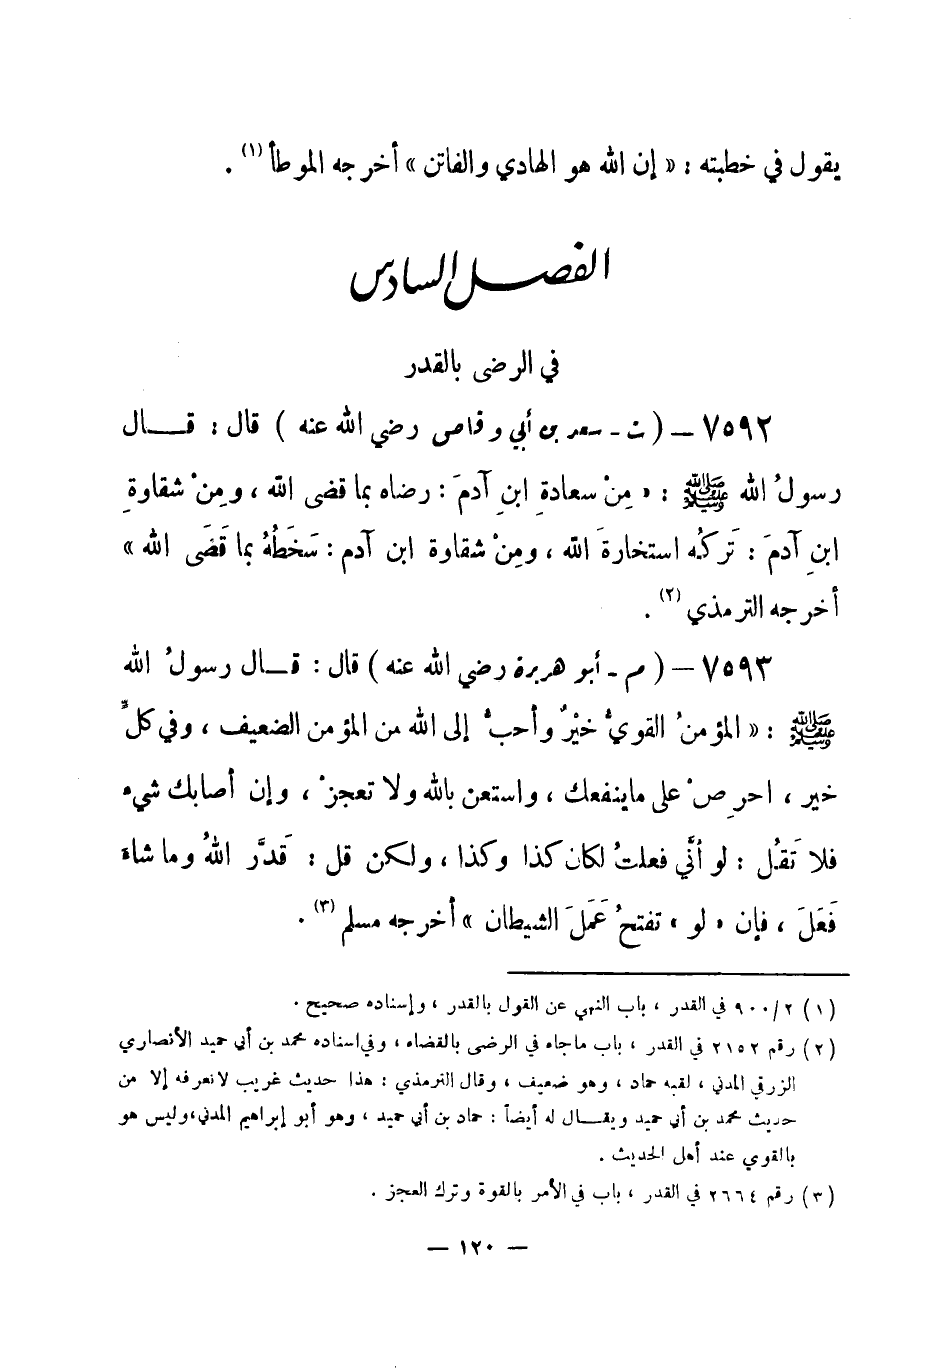 يقول في خطبته : « إن الله هو الهادي والفاتن » أخرجه الموطأ (١) .
الفصل السادس
في الرضى بالقدر
٧٥٩٢ – ( ت - سعد بن أبي وقاص رضي الله عنه ) قال : قــال
رسولُ الله ﷺ : « مِنْ سعادةِ ابنِ آدمَ : رضاه بما قضى الله ، ومِنْ شقاوةِ
ابنِ آدمَ : تَركُه استخارةَ الله ، ومِنْ شقاوة ابن آدم : سَخَطُهُ بما قَضَى الله »
أخرجه الترمذي (٢) .
٧٥٩٣ – ( م - أبو هريرة رضي الله عنه ) قال : قــال رسولُ الله
ﷺ : « المؤمنُ القويُّ خيْرٌ وأحبُّ إلى الله من المؤمن الضعيف ، وفي كلٍّ
خير ، احرِصْ على ماينفعك ، واستعن بالله ولا تعجزْ ، وإن أصابك شيء
فلا تَقُل : لو أنِّي فعلتُ لكان كذا وكذا ، ولكن قل : قَدَّر اللهُ وما شاء
فَعَلَ ، فإن « لو » تفتحُ عَمَلَ الشيطان » أخرجه مسلم (٣) .
(١) ٩٠٠/٢ في القدر ، باب النهي عن القول بالقدر ، وإسناده صحيح .
(٢) رقم ٢١٥٢ في القدر ، باب ماجاء في الرضى بالقضاء ، وفي اسناده محمد بن أبي حميد الأنصاري
الزرقي المدني ، لقبه حماد ، وهو ضعيف ، وقال الترمذي : هذا حديث غريب لانعرفه إلا من
حديث محمد بن أبي حميد ويقــال له أيضاً : حماد بن أبي حميد ، وهو أبو إبراهيم المدني ، وليس هو
بالقوي عند أهل الحديث .
(٣) رقم ٢٦٦٤ في القدر ، باب في الأمر بالقوة وترك العجز .
– ١٢٠ –